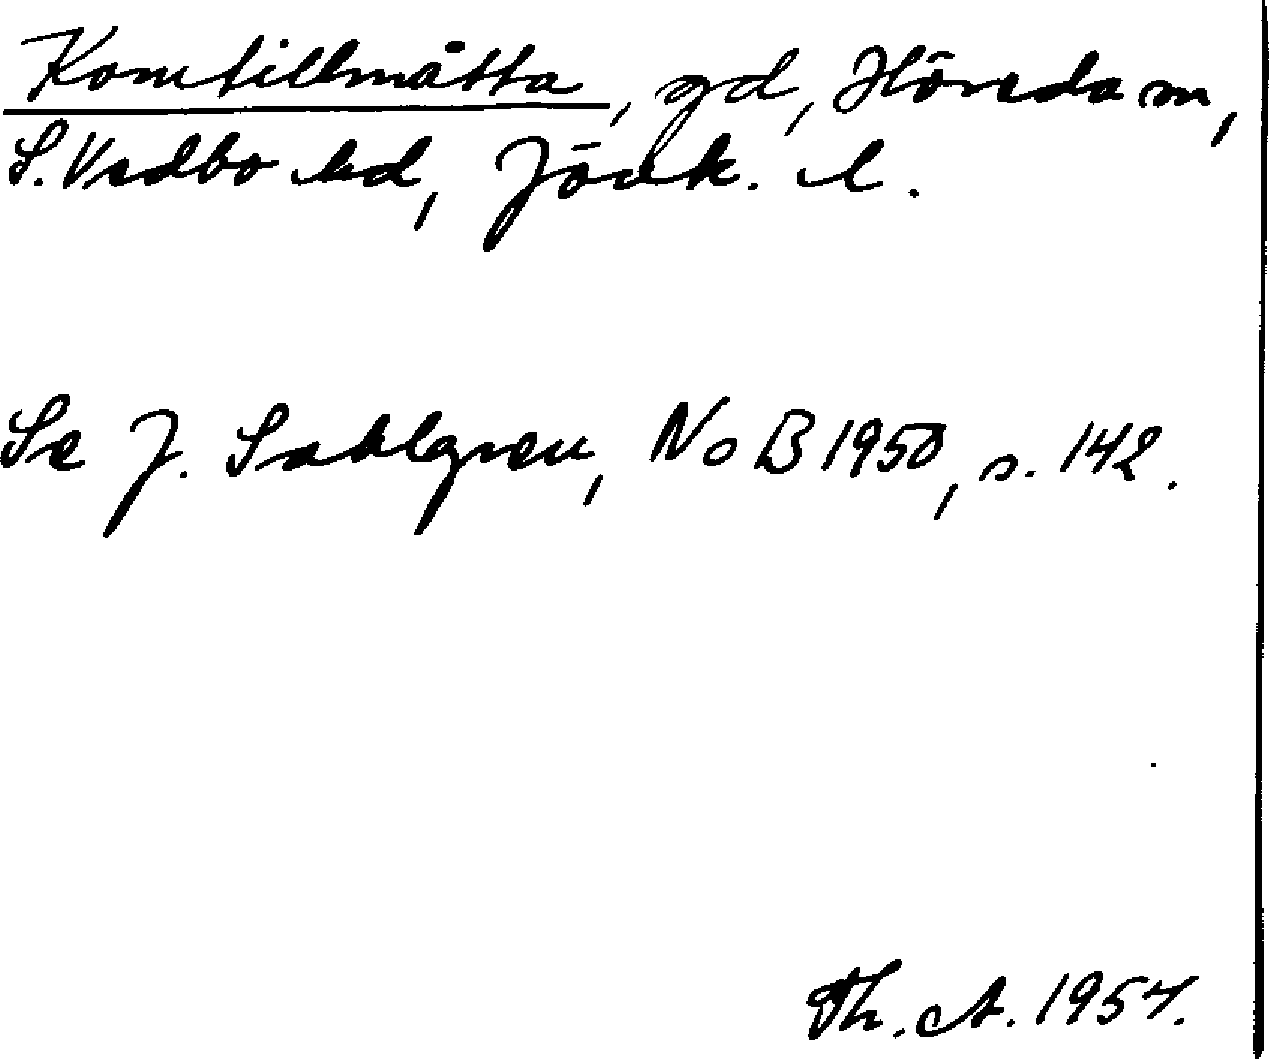 Komtillmåtta, gd, Hörsda sn,
S. Vedbo hd, Jönk. l.
Se J. Sahlgren, NoB 1950, s. 142.
Th. A. 1957.